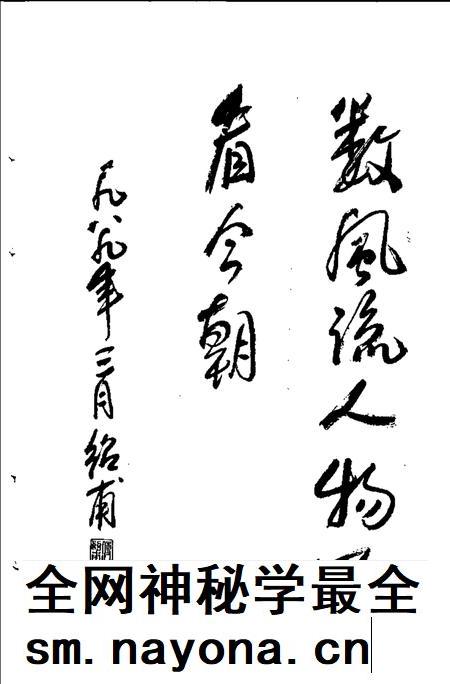 数風流人物
看今朝
一九八九年三月绍甫
全网神秘学最全
sm.nayona.cn